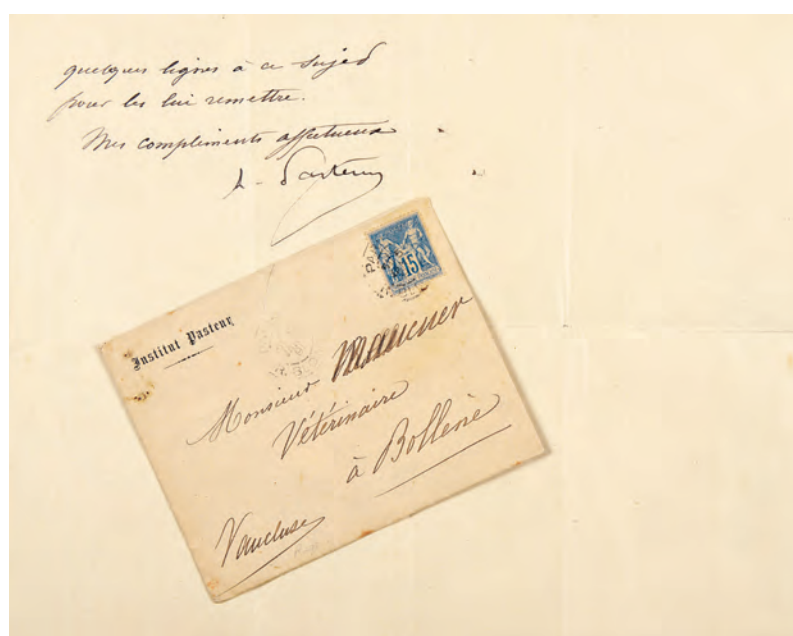 quelques lignes à ce sujet
pour les lui remettre.
Mes compliments affectueux
L. Pasteur
15
Institut Pasteur
Monsieur Maucuer
Vétérinaire
à Bollène
Vaucluse